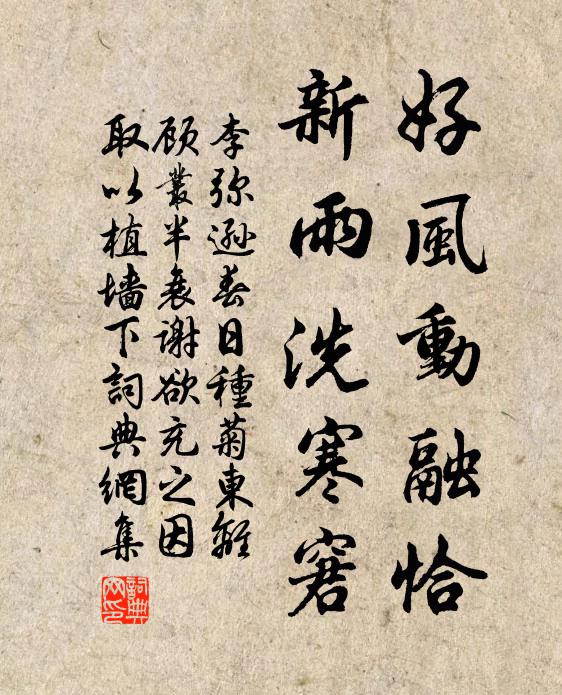 好風動融恰
新雨洗寒窘
李弥遜春日種菊東離
顾叢半衰謝欲充之因
取以植墙下詞典網集
詞典
网印